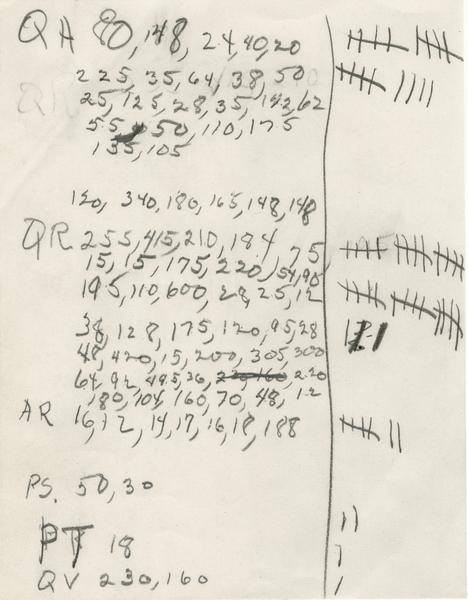 QA 80, 148, 24, 40, 20
225, 35, 64, 38, 50
25, 125, 28, 35, 142, 62
55, 50, 110, 175
135, 105
120, 340, 180, 165, 148, 148
QR 255, 415, 210, 184, 75
15, 15, 175, 220, 54, 90
195, 110, 600, 28, 25, 12
38, 128, 175, 120, 95, 28
48, 420, 15, 200, 305, 300
64, 92, 495, 36, 220
180, 104, 160, 70, 48, 12
AR 16, 12, 14, 17, 16, 18, 188
PS. 50, 30
PT 18
QV 230, 160